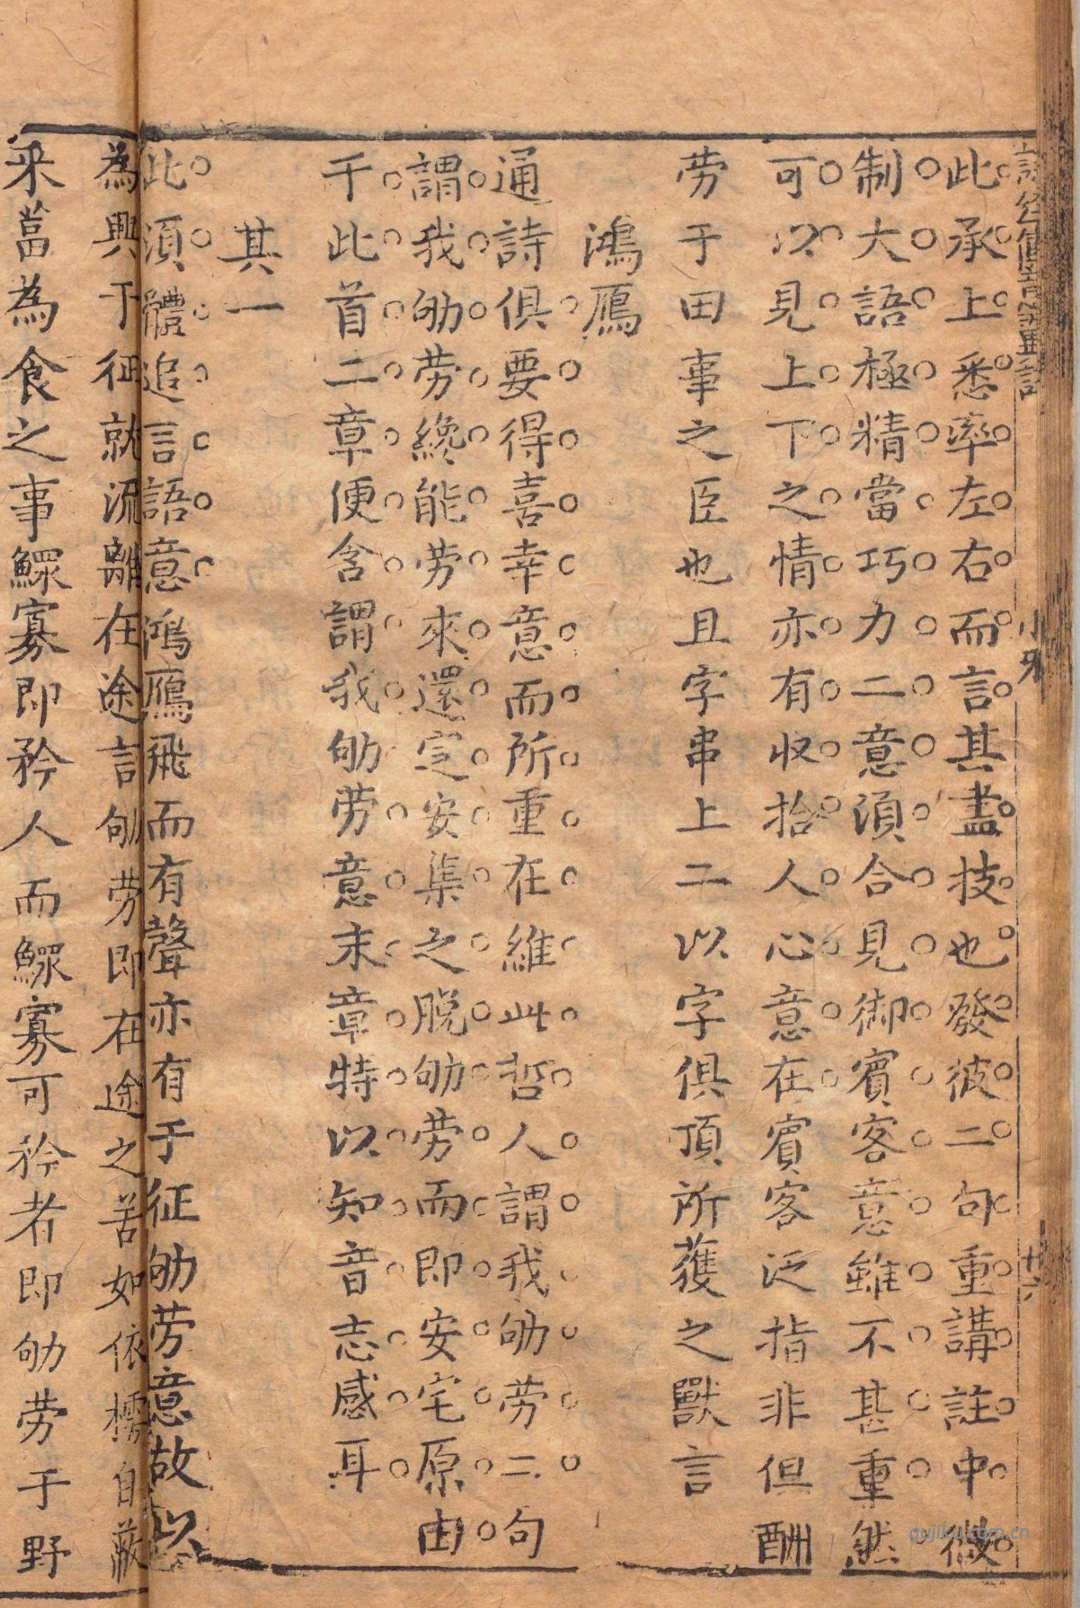 此承上悉率左右而言其盡技也發彼二句重講註中微
制大語極精當巧力二意須合見御賓客意雖不甚重然
可以見上下之情亦有收拾人心意在賓客泛指非但酬
劳于田事之臣也且字串上二以字俱頂所獲之獸言
鴻鴈
通詩俱要得喜幸意而所重在維此哲人謂我劬劳二句
謂我劬劳纔能劳來還定安集之脫劬劳而即安宅原由
于此首二章便含謂我劬劳意末章特以知音志感耳
其一
此須體追言語意鴻鴈飛而有聲亦有于征劬劳意故以
為興于征就流離在途言劬劳即在途之苦如依樗自蔽
采葍為食之事鰥寡即矜人而鰥寡可矜者即劬劳于野
小雅
廿六
gujiku.com.cn